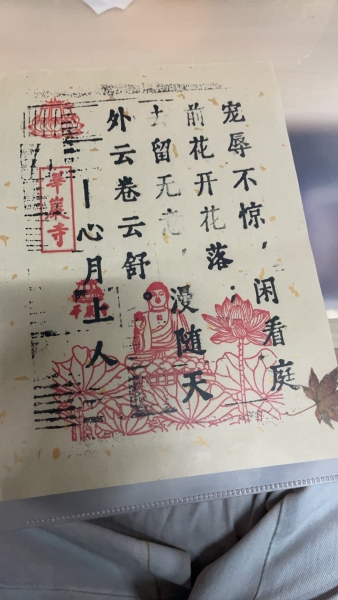 宠辱不惊，闲看庭
前花开花落；
去留无意漫随天
外云卷云舒
—心月上人—